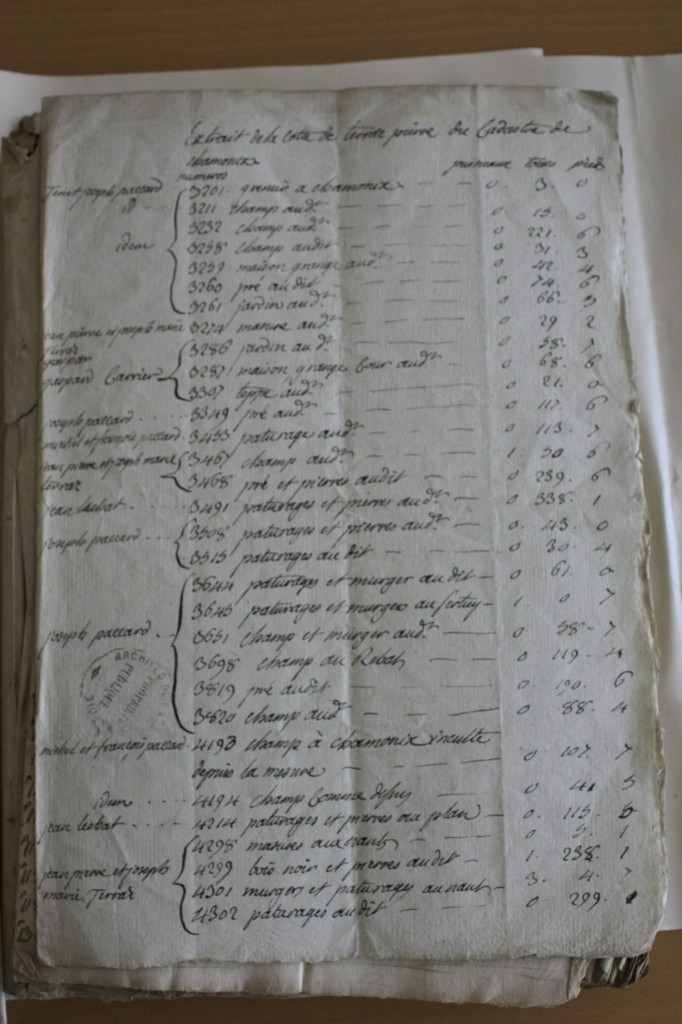 Extrait de la Cotte de terraz pierre du Cadastre de
chamonix
numeros journeaux toises pieds
joseph paccard 3201 grenier a chamonix — 0 . 3 . 0
id 3211 champ aud.t — — — 0 . 15 . 0
3232 champ aud.t — — — 0 . 221 . 6
idem 3258 champ audit — — — 0 . 31 . 3
3259 maison grange aud.t — 0 . 42 . 4
3260 pré audit — — — 0 . 74 . 6
3261 jardin aud.t — — — 0 . 66 . 5
jean pierre et joseph marie 3274 masure aud.t — — — 0 . 29 . 2
Terraz
3286 jardin aud.t — — — 0 . 58 . 7
gaspard Carrier 3287 maison grange Cour aud.t — 0 . 68 . 6
3307 teppe aud.t — — — 0 . 21 . 0
joseph paccard 3349 pré aud.t — — — 0 . 117 . 6
michel et francois paccard 3453 paturage aud.t — — 0 . 113 . 7
jean pierre et joseph marie 3467 champ aud.t — — — 1 . 50 . 6
terraz 3468 pré et pierres audit — — 0 . 239 . 6
jean lesbat 3491 paturages et pierres aud.t — 0 . 338 . 1
joseph paccard 3508 paturages et pierres aud.t — 0 . 43 . 0
3515 paturages audit — — — 0 . 30 . 4
3644 paturages et murger audit — 0 . 61 . 0
3645 paturages et murgers au — 1 . 0 . 7
joseph paccard 3651 champ et murger aud.t — 0 . 58 . 7
3698 champ au — — 0 . 119 . 4
3819 pré audit — — — 0 . 190 . 6
3820 champ aud.t — — — 0 . 88 . 4
michel et françois paccard 4193 champ à chamonix inculte
depuis la mesure — — — 0 . 107 . 7
idem 4194 champ Comme desus — 0 . 41 . 5
jean lesbat 4214 paturages et pierres au plan — 0 . 115 . 6
4298 masures aux nants — 0 . 5 . 1
jean pierre et joseph 4299 bois noir et pierres audit — 1 . 238 . 1
marie Terraz 4301 murgers et paturages aunant — 3 . 4 . 7
4302 paturages audit — — 0 . 299 .
ARCHIVES